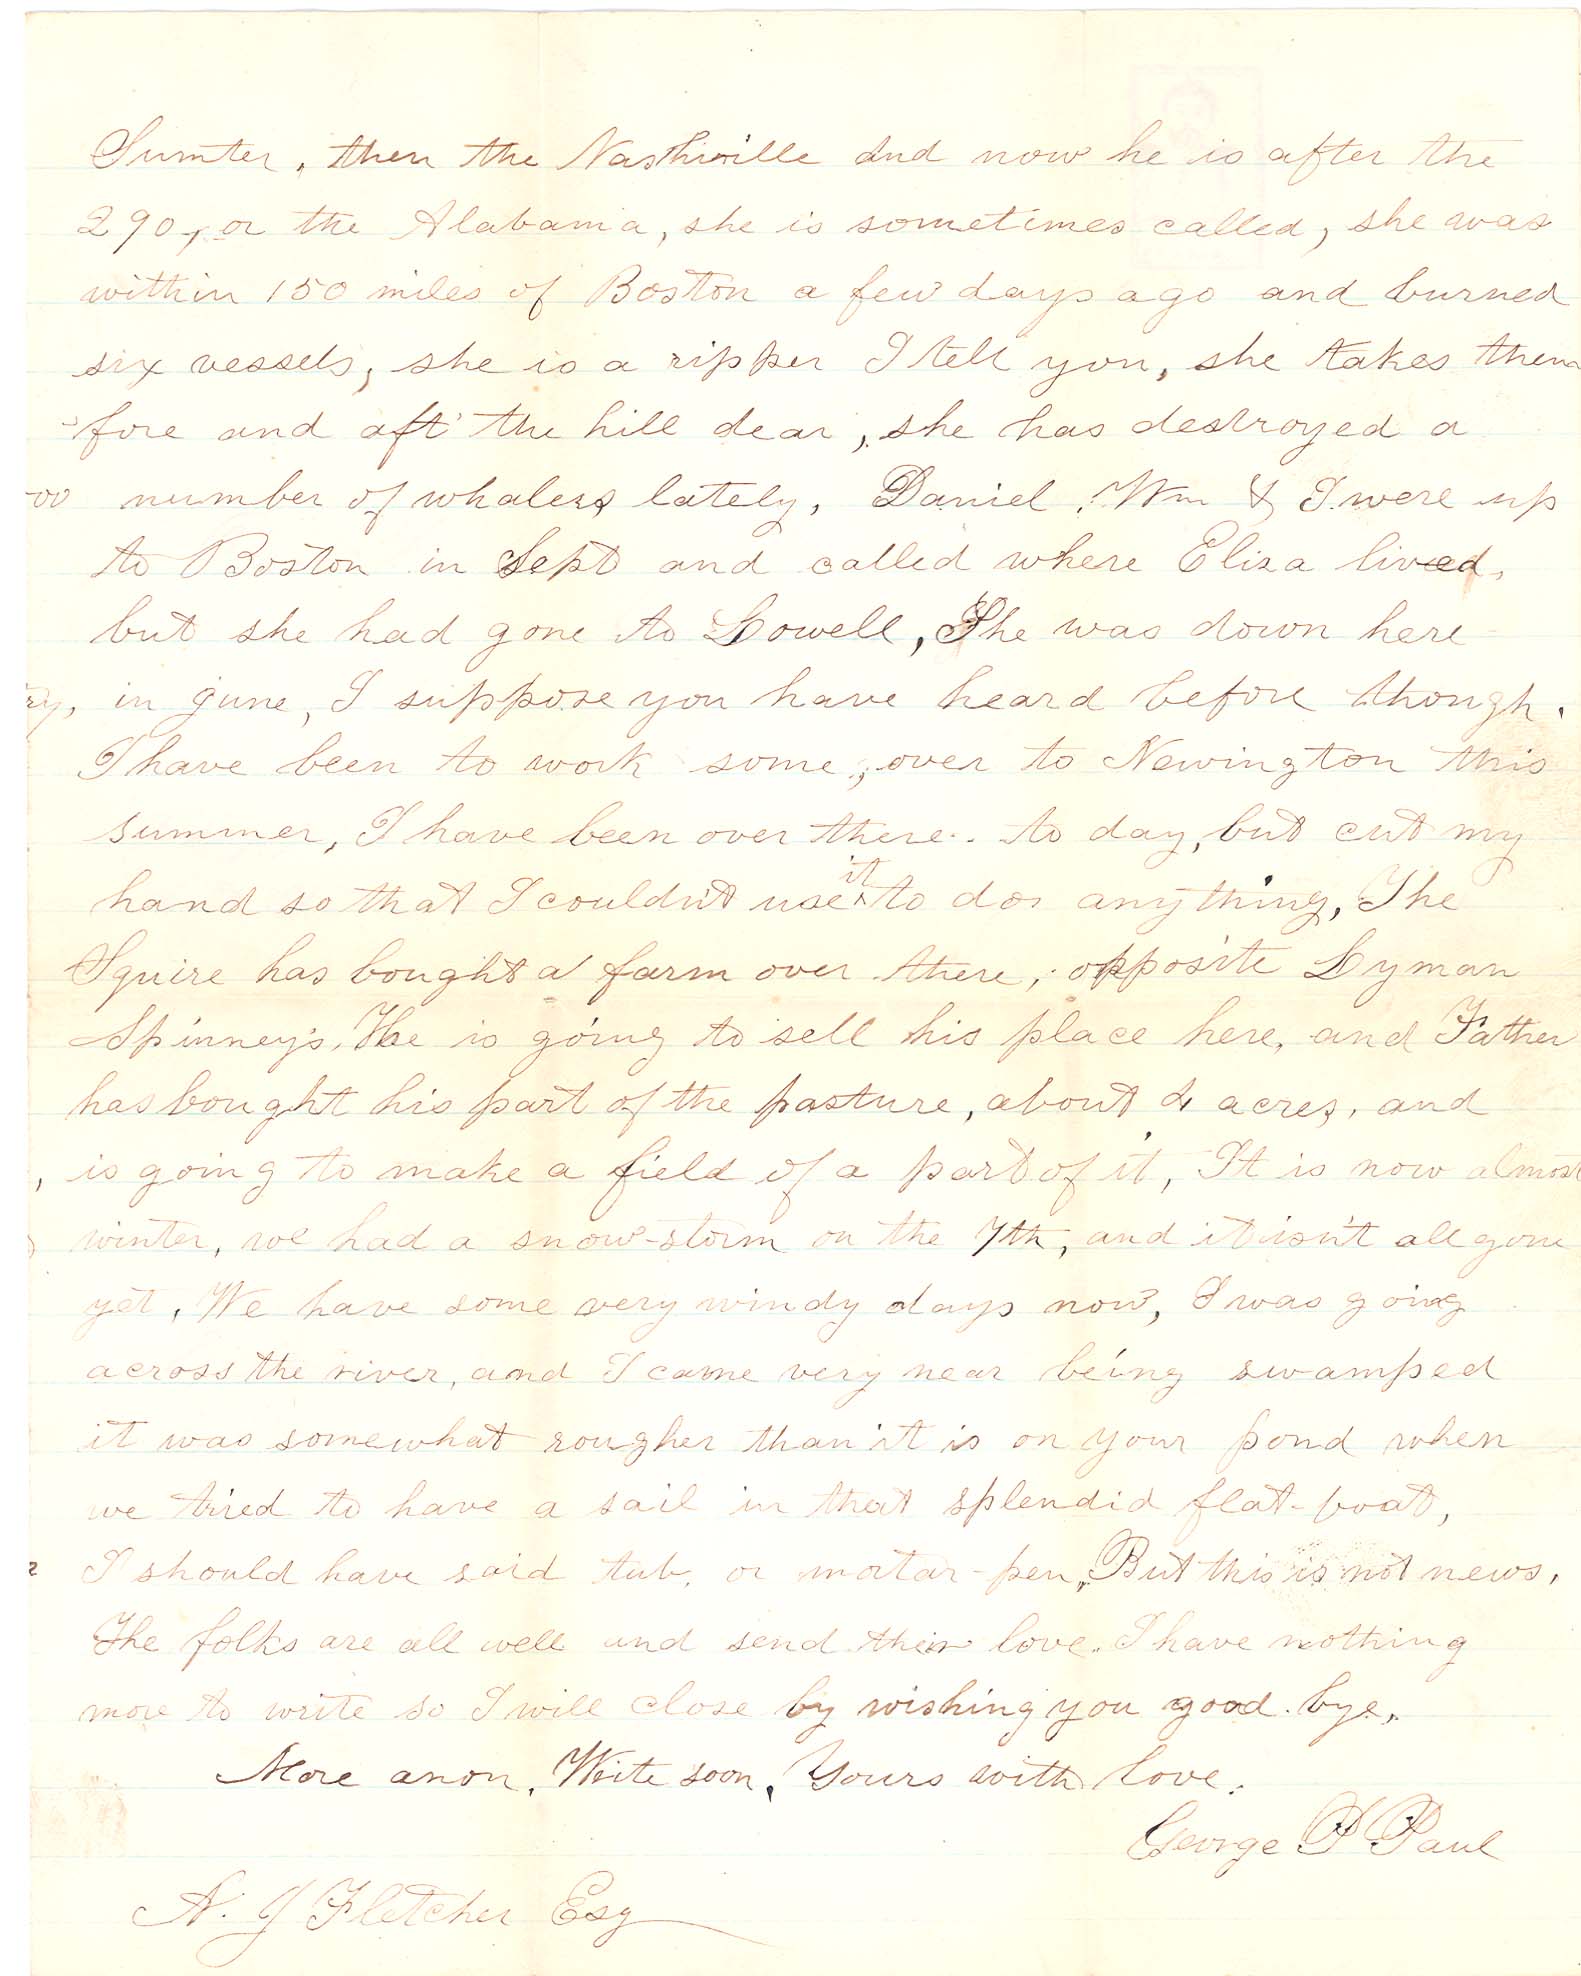 Sumter, then the Nashville and now he is after the
290, or the Alabama, she is sometimes called, she was
within 150 miles of Boston a few days ago and burned
six vessels, she is a ripper I tell you, she takes them
fore and aft the hill dear, she has destroyed a
number of whalers lately, Daniel, Wm & I were up
to Boston in Sept and called where Eliza lived,
but she had gone to Lowell, She was down here
in june, I suppose you have heard before though.
I have been to work some, over to Newington this
summer, I have been over there to day, but cut my
hand so that I couldn't use it to do anything, The
Squire has bought a farm over there, opposite Lyman
Spinney's, He is going to sell his place here, and Father
has bought his part of the pasture, about 4 acres, and
is going to make a field of a part of it, It is now almost
winter, we had a snow-storm on the 7th, and it isn't all gone
yet, We have some very windy days now, I was going
across the river, and I came very near being swamped
it was somewhat rougher than it is on your pond when
we tried to have a sail in that splendid flat-boat,
I should have said tub, or mortar-pen, But this is not news,
The folks are all well and send their love. I have nothing
more to write so I will close by wishing you good bye,
More anon, Write soon, Yours with love.
George P Paul
A. J Fletcher Esq